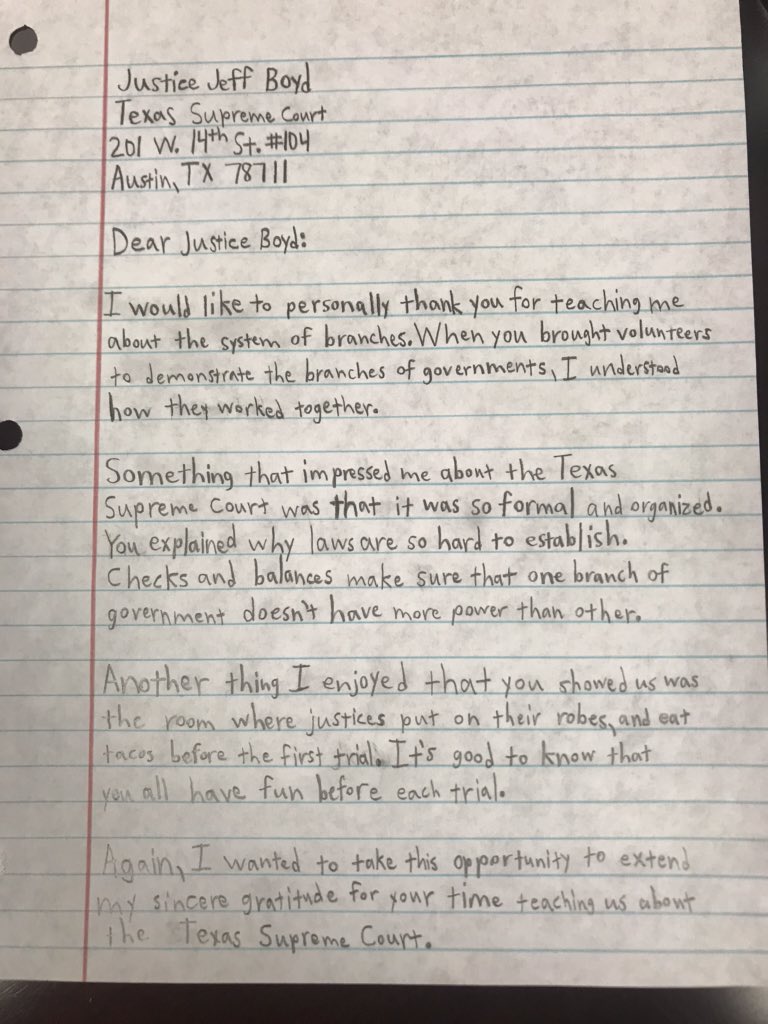 Justice Jeff Boyd
Texas Supreme Court
201 W. 14th St. #104
Austin, TX 78711
Dear Justice Boyd:
I would like to personally thank you for teaching me
about the system of branches. When you brought volunteers
to demonstrate the branches of governments, I understood
how they worked together.
Something that impressed me about the Texas
Supreme Court was that it was so formal and organized.
You explained why laws are so hard to establish.
Checks and balances make sure that one branch of
government doesn't have more power than other.
Another thing I enjoyed that you showed us was
the room where justices put on their robes, and eat
tacos before the first trial. It's good to know that
you all have fun before each trial.
Again, I wanted to take this opportunity to extend
my sincere gratitude for your time teaching us about
the Texas Supreme Court.